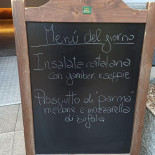 Menú del giorno
Insalata catalana
con gamberi e seppie
Prosciutto di "parma"
melone e mozzarella
di bufala